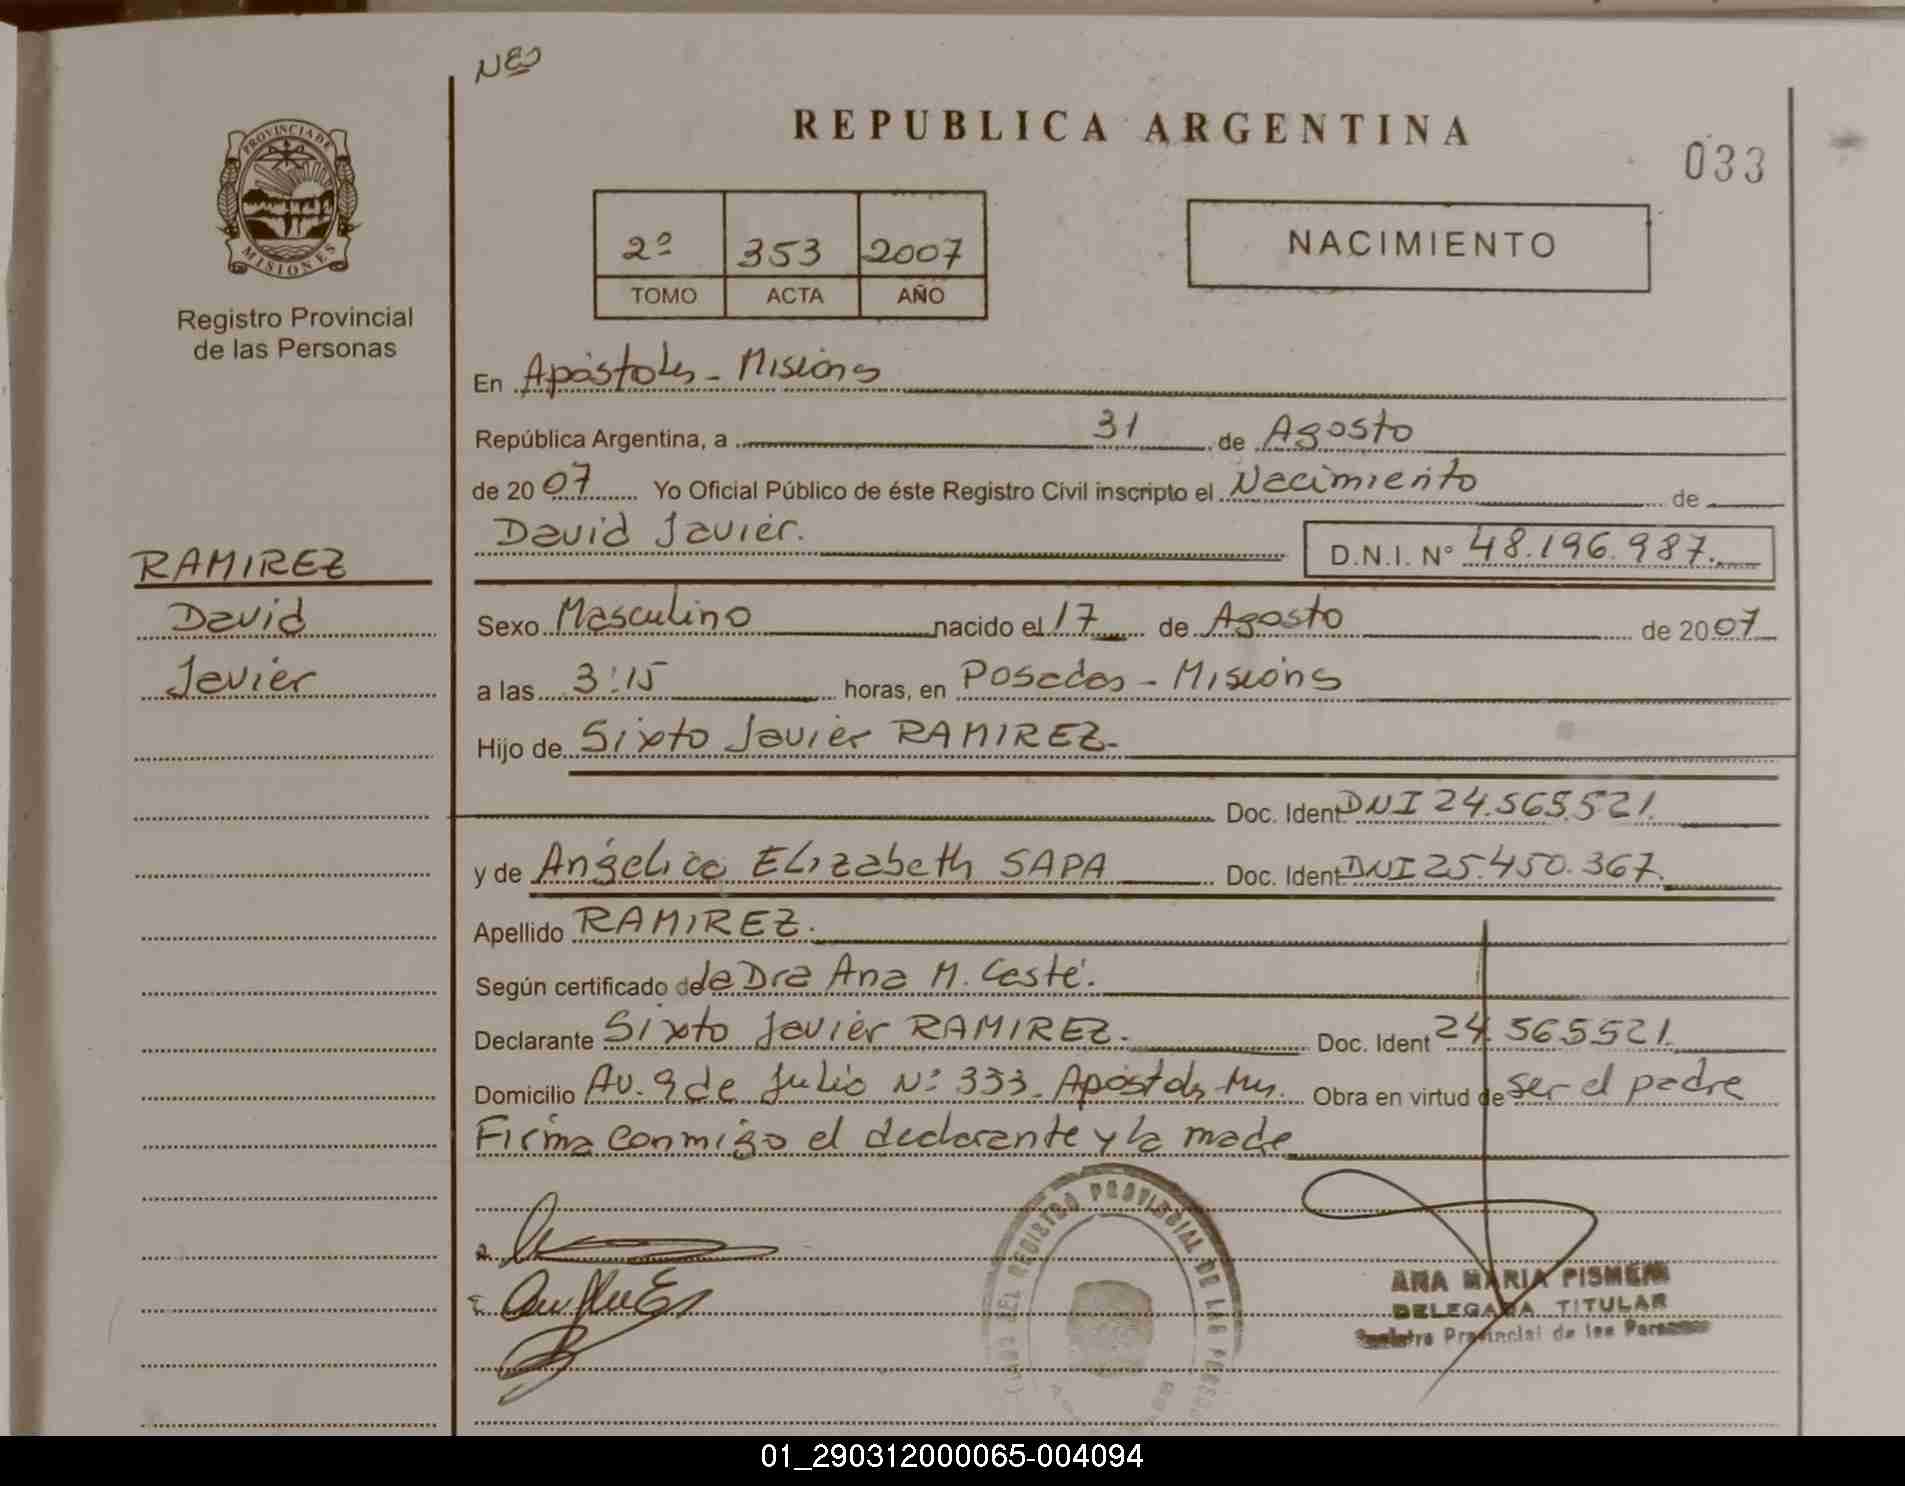 NES
REPUBLICA ARGENTINA
033
PROVINCIA DE
MISIONES
Registro Provincial
de las Personas
2º 353 2007
TOMO ACTA AÑO
NACIMIENTO
En Apóstoles - Misiones
República Argentina, a 31 de Agosto
de 2007 Yo Oficial Público de éste Registro Civil inscripto el Nacimiento de
David Javier. D.N.I. Nº 48.196.987.
RAMIREZ
David
Javier
Sexo Masculino nacido el 17 de Agosto de 2007
a las 3:15 horas, en Posadas - Misiones
Hijo de Sixto Javier RAMIREZ.
Doc. Ident DNI 24.565.521.
y de Angélica Elizabeth SAPA Doc. Ident DNI 25.450.367.
Apellido RAMIREZ.
Según certificado de la Dra Ana M. Casté.
Declarante Sixto Javier RAMIREZ. Doc. Ident 24.565521.
Domicilio Av. 9 de Julio Nº 333. Apóstoles Mnes. Obra en virtud de ser el padre
Firma conmigo el declarante y la madre
REGISTRO PROVINCIAL DE LAS PERSONAS
ANA MARIA PISMENI
DELEGADA TITULAR
Registro Provincial de las Personas
01_290312000065-004094